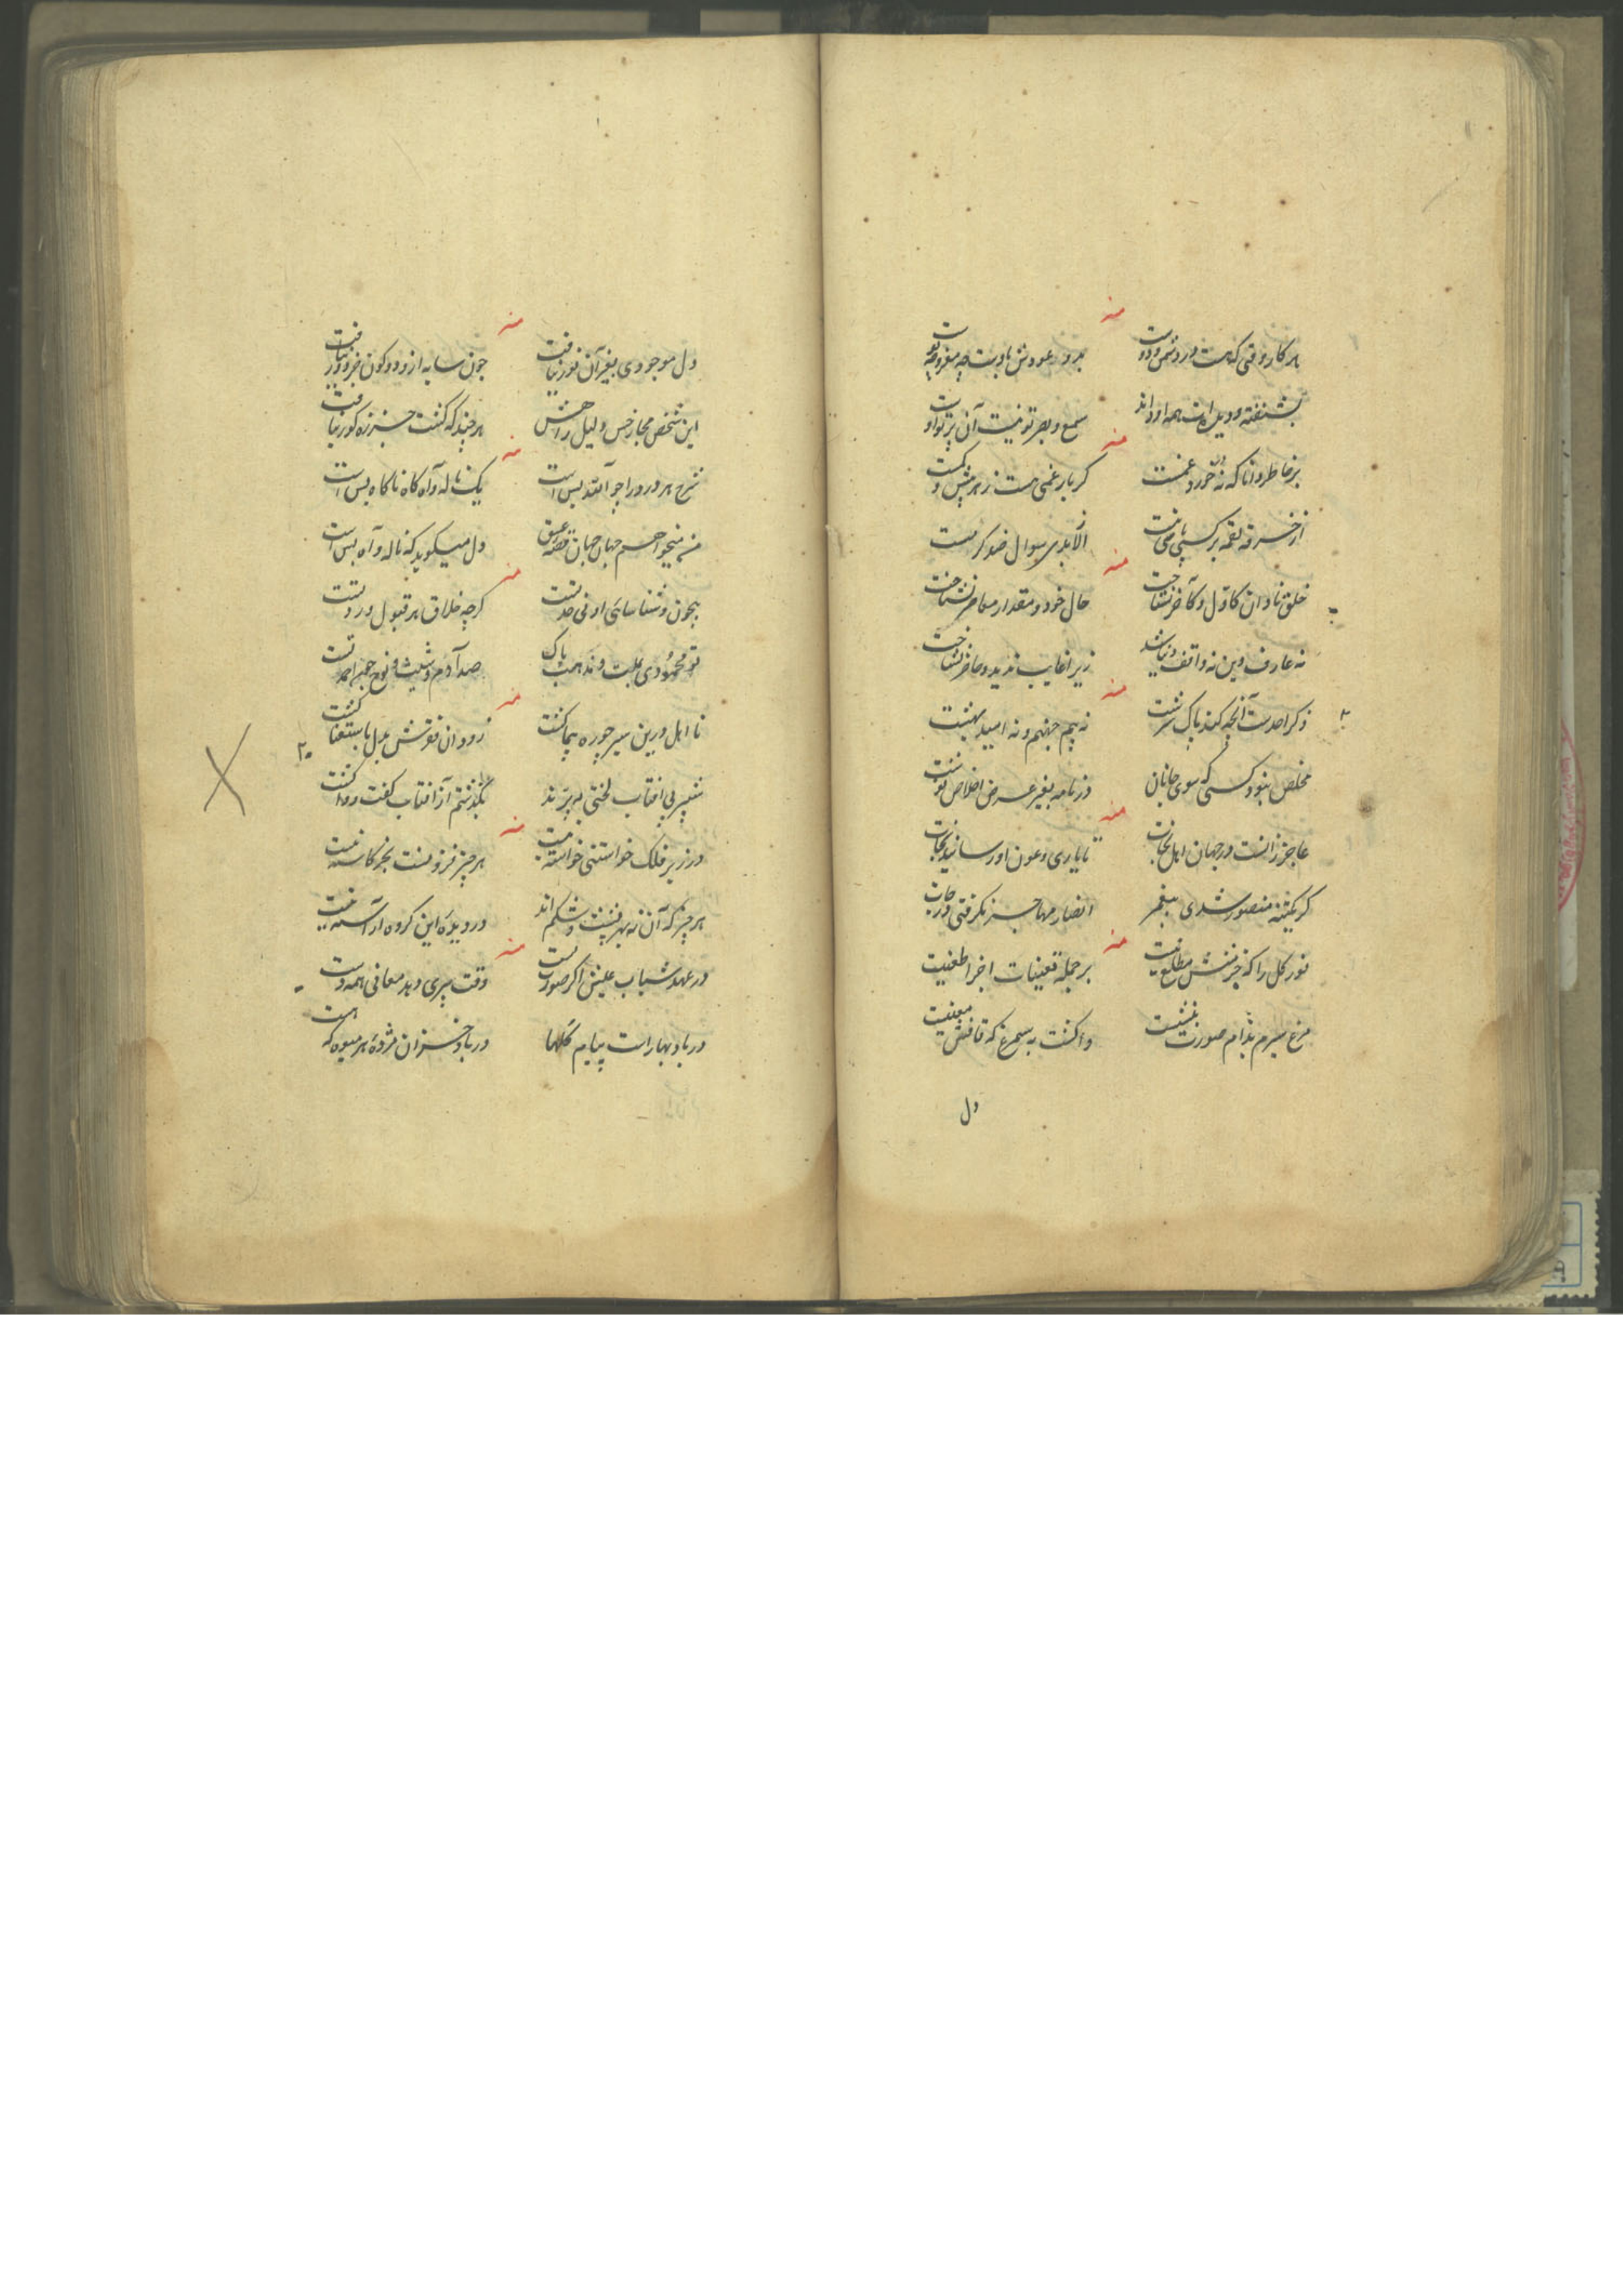 منه
هر کار بوقتی که هست در دشمن و دوست
بشنفته و دیده
سمع و بصر تو نیست آن پرتو اوست
منه
بر خاطر دانا که نه در خورد غمست
گر بار غمی هست ز هر بیش و کمست
از خرقه لقمه هر کسی یافت
الا بدی سوال ضو کرمست
منه
خلق نادان کاول و آخر نشناخت
حال خود و مقدار معاصر نشناخت
نه عارف دین نه واقف دنیا شد
زیرا غایب ندید و حاضر نشناخت
منه
ذکر احدست آنچه کند پاک سرشت
نه بیم جهنم و نه امید بهشت
مخلص نبود کسی که سوی جانان
در نامه بغیر عرض اخلاص نوشت
منه
عاجز زانست در جهان اهل نجات
تا یاری و عون او رسانید نجات
گر یکتنه منصور شدی پیغمبر
انصار مهاجر نگرفتی درجات
منه
نور کل را که جز منش مطلع نیست
بر جمله تعینات اجزا طعنیست
مرغ سیرم بدام صورت ننشست
واگشت به سیمرغ که قافش معنیست
دل
منه
دل موجودی بغیر آن نور نیافت
چون سایه ازو دو کون جز دور نیافت
این شخص مجاز حس دلیل راهش
هر چند که گشت جز ره کور نیافت
منه
شرح هر درد را چو الله بس است
یک ناله و آه گاه ناگاه بس است
من میخواهم جهان جهان قصه عشق
دل میگوید که ناله و آه بس است
منه
بیچون و شناسائی او بی حدتست
گرچه خلاق هر قبول و ردتست
تو محمودی بملت و مذهب پاک
صد آدم و شیث و نوح جمله احمدتست
منه
نا اهل درین سیر چو ره پیما گشت
زود آن فقرش بدل باستغنا گشت
شبپر پی آفتاب لختی بپرید
بگذشتم از آفتاب گفت و واگشت
۲۰
منه
در زیر فلک خواستنی خواسته نیست
هر چیز فزونست بجز کاسته نیست
هر چیز که آن نه بهر پشت و شکم اند
در دیدهٔ این گروه آراسته نیست
منه
در عهد شباب عیش اگر صورتست
وقت پیری دهد معانی همه دست
در باد بهار است پیام گلها
در باد خزان مژدهٔ هر میوه که هست